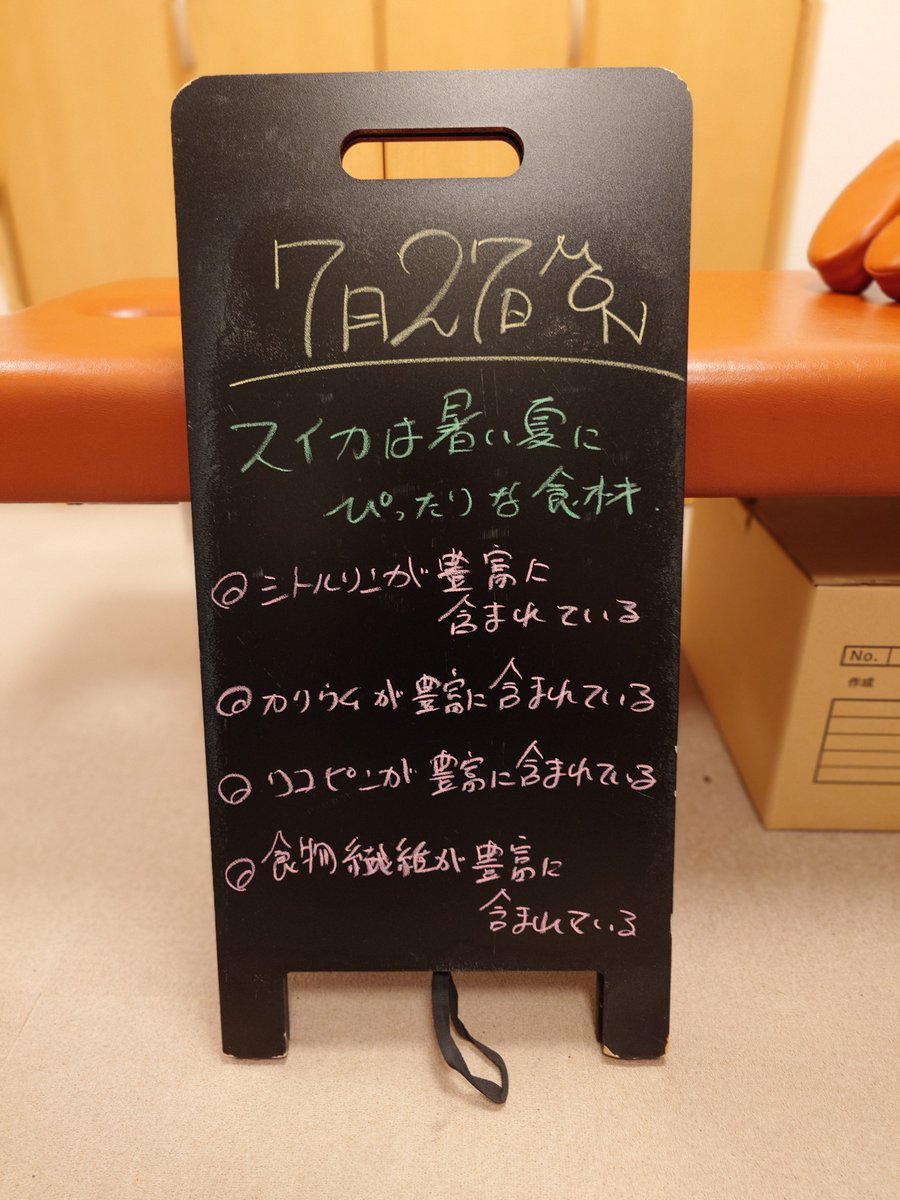 7月27日 MON
スイカは暑い夏に
ぴったりな食材.
◎シトルリンが豊富に
含まれている
◎カリウムが豊富に含まれている
◎リコピンが豊富に含まれている
◎食物繊維が豊富に
含まれている
No.
作成